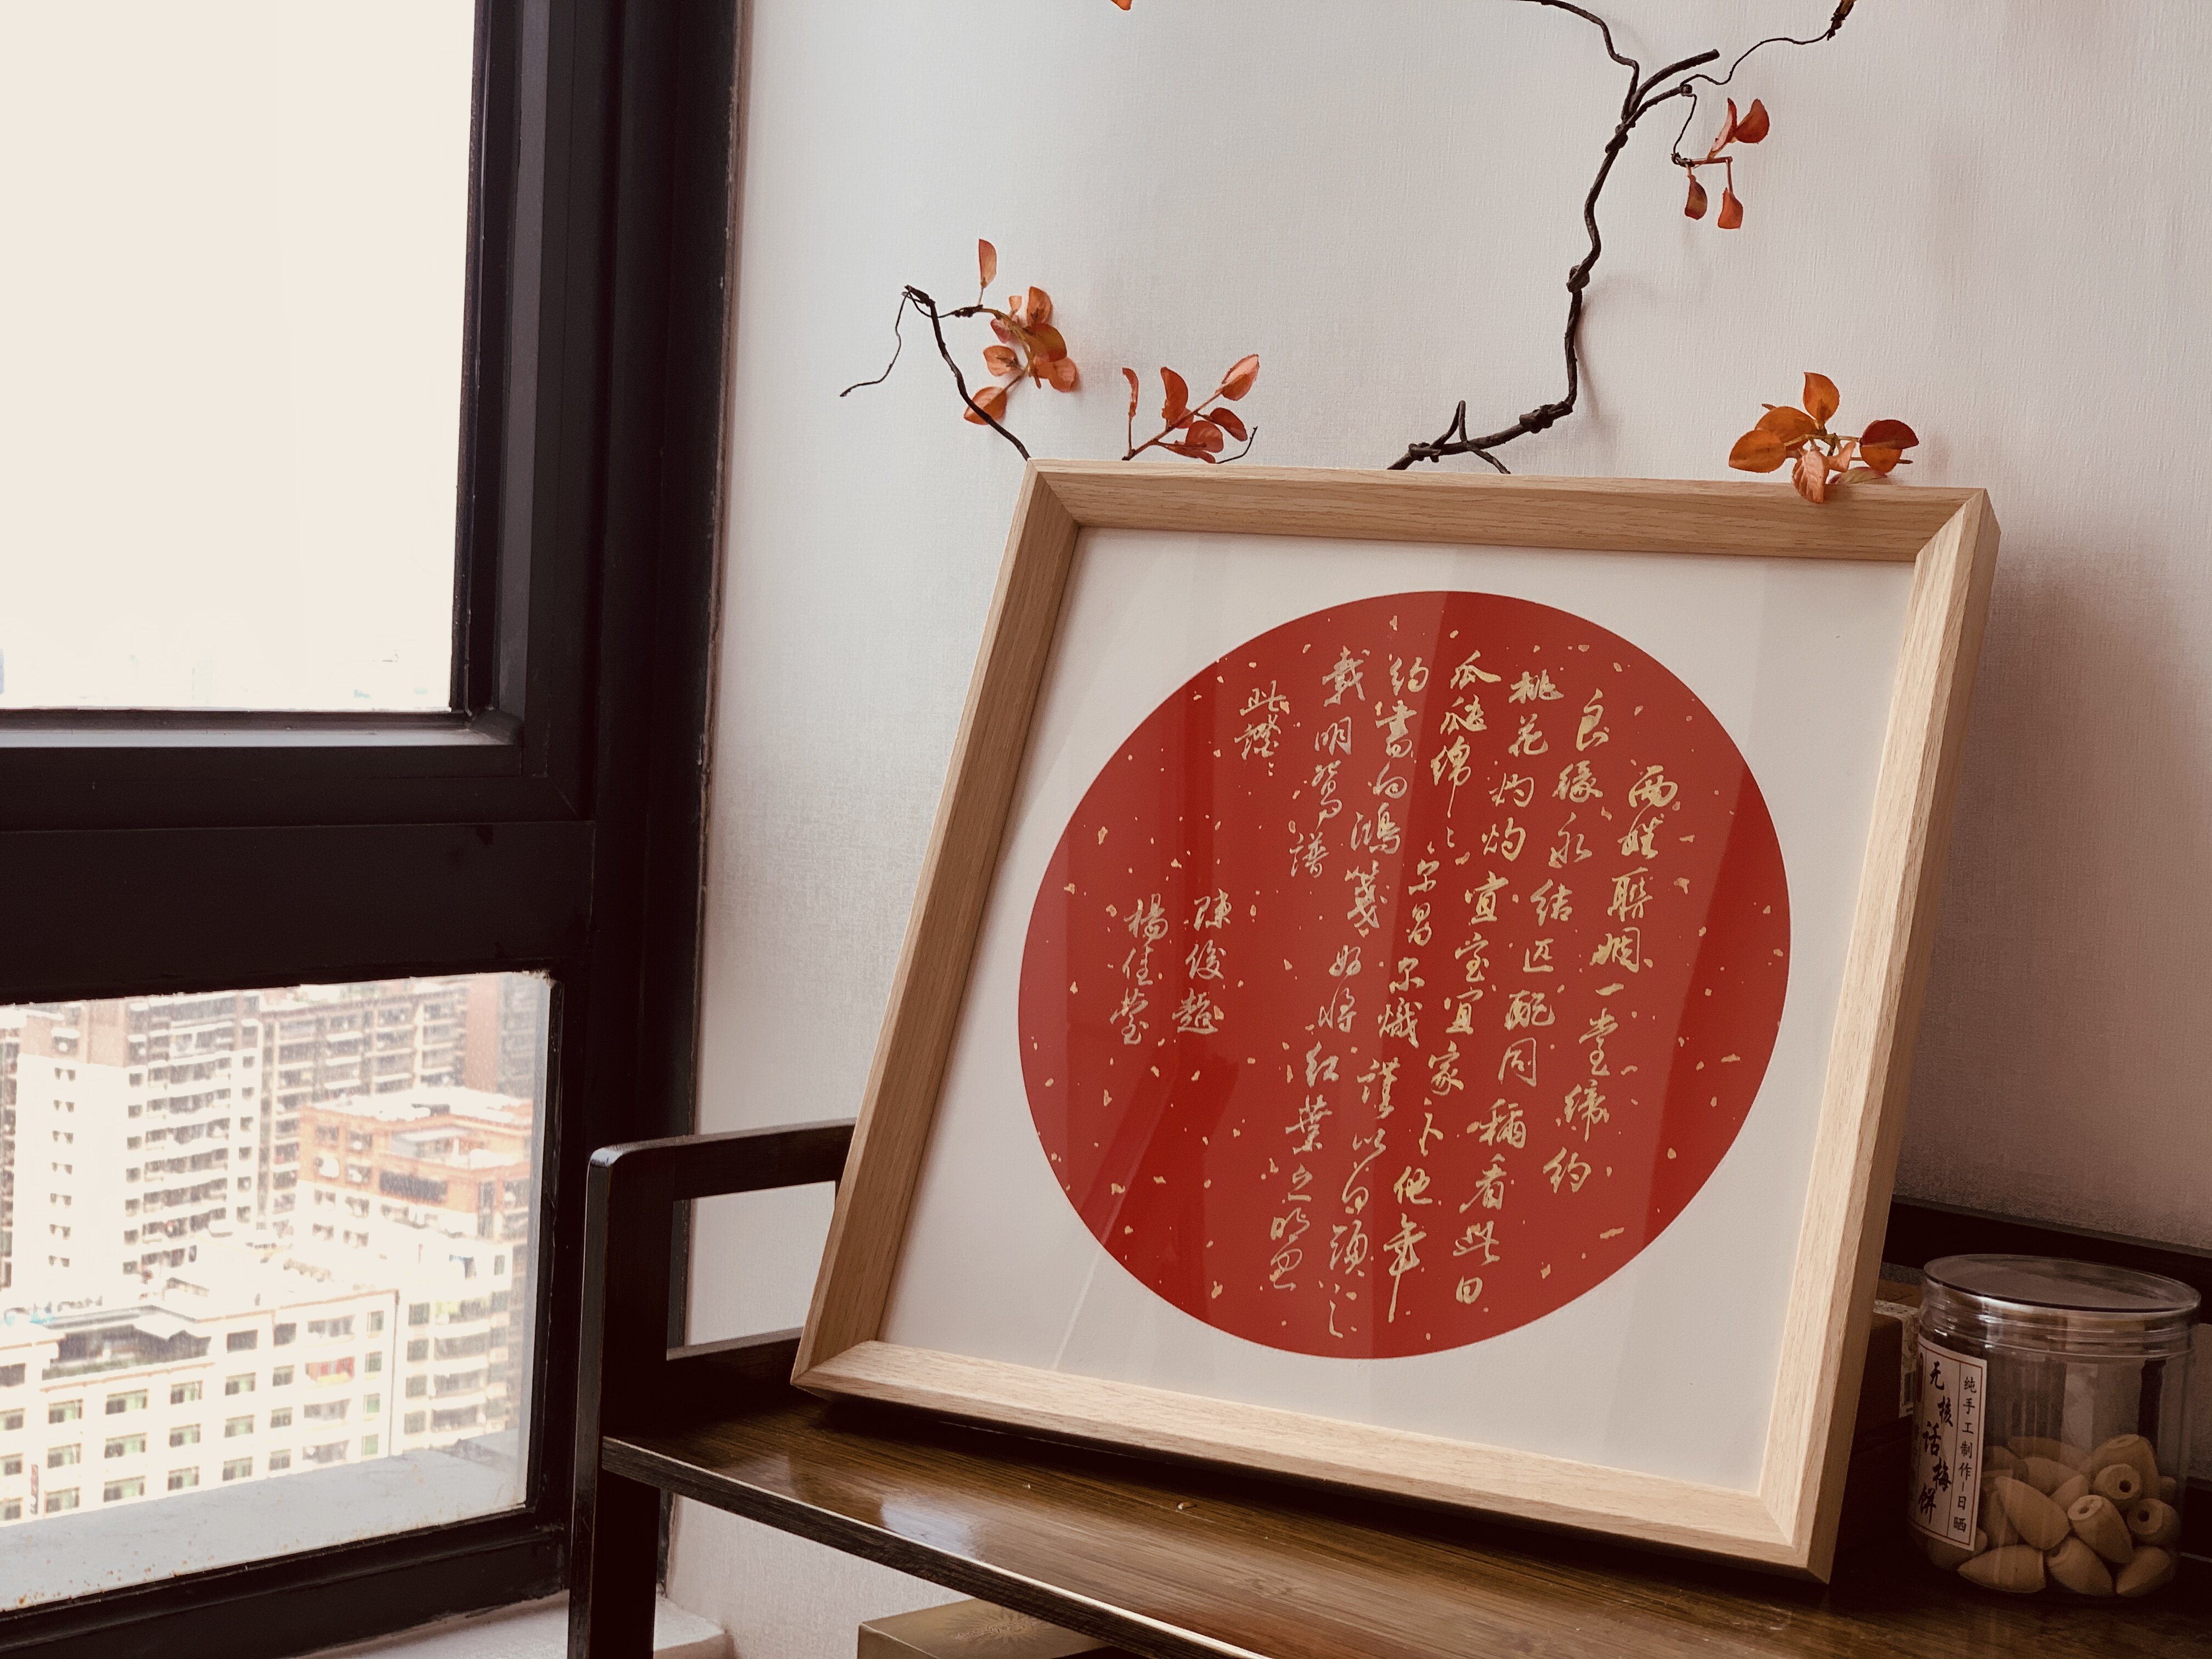 兩姓聯姻一堂締約
良緣永結匹配同稱看此日
桃花灼灼宜室宜家卜他年
瓜瓞綿〻尔昌尔熾謹以白頭之
約書向鴻箋好將紅葉之盟
載明鴛譜
此證
陳俊超
楊佳瑩
纯手工制作—日晒
无核话梅饼